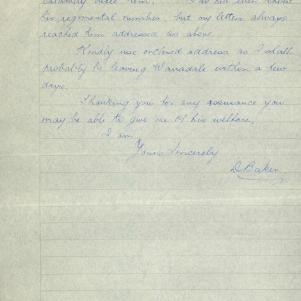 his regimental number, but my letters always
reached him addressed as above.
Kindly use enclosed address as I shall
probably be leaving Wansdale within a few
days.
Thanking you for any assurance you
may be able to give me of his welfare.
I am
Yours Sincerely
D. Baker